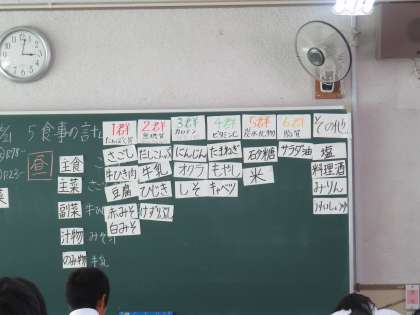 5 食事の計
昼
主食
主菜
副菜
汁物 みそ汁
のみ物 牛乳
1群 たんぱく質
さごし
牛ひき肉
豆腐
赤みそ
白みそ
2群 無機質
だしこんぶ
牛乳
ひじき
けずりぶし
3群 カロテン
にんじん
オクラ
しそ
4群 ビタミンC
たまねぎ
もやし
キャベツ
5群 炭水化物
砂糖
米
6群 脂質
サラダ油
その他
塩
料理酒
みりん